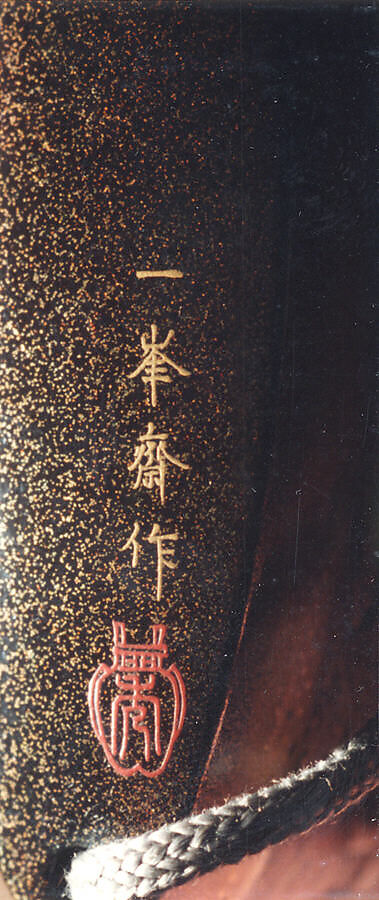 一峯齋作